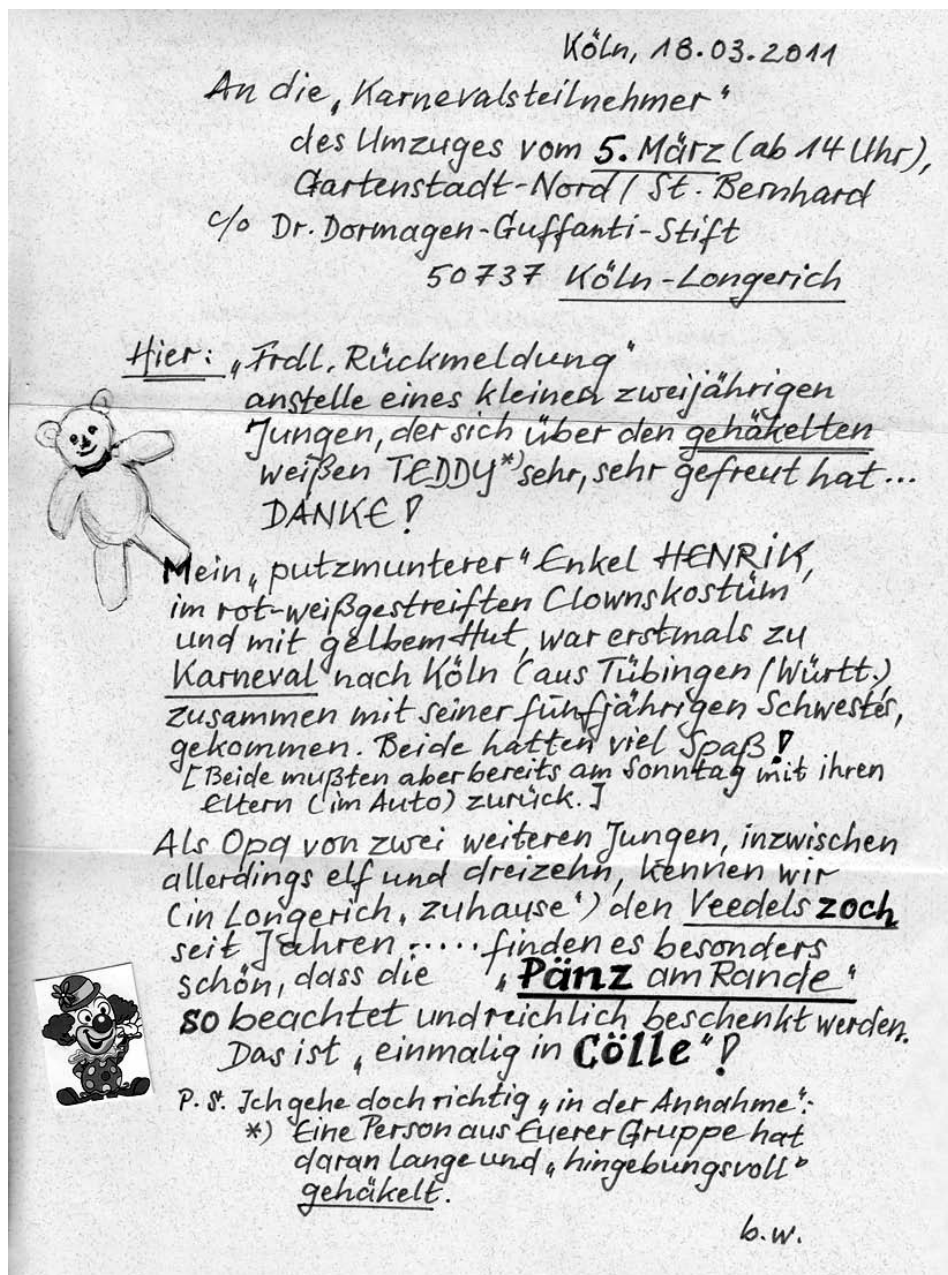 Köln, 18.03.2011
An die „Karnevalsteilnehmer“
des Umzuges vom 5. März (ab 14 Uhr),
Gartenstadt-Nord / St. Bernhard
c/o Dr. Dormagen-Guffanti-Stift
50737 Köln-Longerich
Hier: „Frdl. Rückmeldung“
anstelle eines kleinen zweijährigen
Jungen, der sich über den gehäkelten
weißen TEDDY*) sehr, sehr gefreut hat...
DANKE!
Mein „putzmunterer“ Enkel HENRIK,
im rot-weißgestreiften Clownskostüm
und mit gelbem Hut, war erstmals zu
Karneval nach Köln (aus Tübingen / Württ.)
zusammen mit seiner fünfjährigen Schwester,
gekommen. Beide hatten viel Spaß!
[Beide mußten aber bereits am Sonntag mit ihren
Eltern (im Auto) zurück.]
Als Opa von zwei weiteren Jungen, inzwischen
allerdings elf und dreizehn, kennen wir
(in Longerich „zuhause“) den Veedels zoch
seit Jahren ..... finden es besonders
schön, dass die „Pänz am Rande“
so beachtet und reichlich beschenkt werden.
Das ist „einmalig in Cölle“!
P.S. Ich gehe doch richtig „in der Annahme“:
*) Eine Person aus Euerer Gruppe hat
daran lange und „hingebungsvoll“
gehäkelt.
b.w.